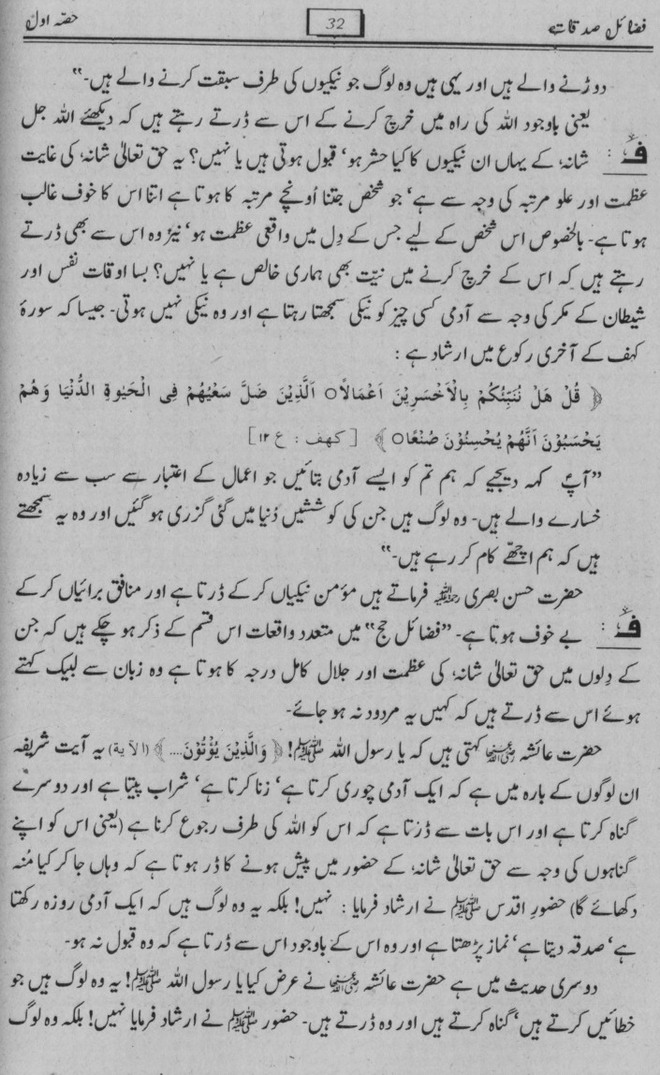 فضائل صدقات 32 حصّہ اول
دوڑنے والے ہیں اور یہی ہیں وہ لوگ جو نیکیوں کی طرف سبقت کرنے والے ہیں۔“
یعنی باوجود اللہ کی راہ میں خرچ کرنے کے اس سے ڈرتے رہتے ہیں کہ دیکھئے اللہ جل
ف: شانہٗ کے یہاں ان نیکیوں کا کیا حشر ہو‘ قبول ہوتی ہیں یا نہیں؟ یہ حق تعالیٰ شانہٗ کی غایت
عظمت اور علو مرتبہ کی وجہ سے ہے‘ جو شخص جتنا اُونچے مرتبہ کا ہوتا ہے اتنا اس کا خوف غالب
ہوتا ہے۔ بالخصوص اس شخص کے لیے جس کے دِل میں واقعی عظمت ہو‘ نیز وہ اس سے بھی ڈرتے
رہتے ہیں کہ اس کے خرچ کرنے میں نیّت بھی ہماری خالص ہے یا نہیں؟ بسا اوقات نفس اور
شیطان کے مکر کی وجہ سے آدمی کسی چیز کو نیکی سمجھتا رہتا ہے اور وہ نیکی نہیں ہوتی۔ جیسا کہ سورۂ
کہف کے آخری رکوع میں ارشاد ہے :
﴿ قُلْ هَلْ نُنَبِّئُكُمْ بِالْاَخْسَرِيْنَ اَعْمَالًاO اَلَّذِيْنَ ضَلَّ سَعْيُهُمْ فِى الْحَيٰوةِ الدُّنْيَا وَهُمْ
يَحْسَبُوْنَ اَنَّهُمْ يُحْسِنُوْنَ صُنْعًاO ﴾ [کہف : ع ۱۲]
”آپؐ کہہ دیجیے کہ ہم تم کو ایسے آدمی بتائیں جو اعمال کے اعتبار سے سب سے زیادہ
خسارے والے ہیں۔ وہ لوگ ہیں جن کی کوششیں دُنیا میں گئی گزری ہو گئیں اور وہ یہ سمجھتے
ہیں کہ ہم اچھّے کام کر رہے ہیں۔“
حضرت حسن بصری رحمۃ اللہ علیہ فرماتے ہیں مؤمن نیکیاں کر کے ڈرتا ہے اور منافق برائیاں کر کے
ف: بے خوف ہوتا ہے۔ ”فضائل حج“ میں متعدد واقعات اس قسم کے ذکر ہو چکے ہیں کہ جن
کے دِلوں میں حق تعالیٰ شانہٗ کی عظمت اور جلال کامل درجہ کا ہوتا ہے وہ زبان سے لبیک کہتے
ہوئے اس سے ڈرتے ہیں کہ کہیں یہ مردود نہ ہو جائے۔
حضرت عائشہ رضی اللہ عنہا کہتی ہیں کہ یا رسول اللہ ﷺ! ﴿ وَالَّذِيْنَ يُؤْتُوْنَ .... ﴾ (الآیة) یہ آیت شریفہ
ان لوگوں کے بارہ میں ہے کہ ایک آدمی چوری کرتا ہے‘ زنا کرتا ہے‘ شراب پیتا ہے اور دوسرے
گناہ کرتا ہے اور اس بات سے ڈرتا ہے کہ اس کو اللہ کی طرف رجوع کرنا ہے (یعنی اس کو اپنے
گناہوں کی وجہ سے حق تعالیٰ شانہٗ کے حضور میں پیش ہونے کا ڈر ہوتا ہے کہ وہاں جا کر کیا مُنہ
دکھائے گا) حضورِ اقدس ﷺ نے ارشاد فرمایا : نہیں! بلکہ یہ وہ لوگ ہیں کہ ایک آدمی روزہ رکھتا
ہے‘ صدقہ دیتا ہے‘ نماز پڑھتا ہے اور وہ اس کے باوجود اس سے ڈرتا ہے کہ وہ قبول نہ ہو۔
دوسری حدیث میں ہے حضرت عائشہ رضی اللہ عنہا نے عرض کیا یا رسول اللہ ﷺ! یہ وہ لوگ ہیں جو
خطائیں کرتے ہیں‘ گناہ کرتے ہیں اور وہ ڈرتے ہیں۔ حضور ﷺ نے ارشاد فرمایا نہیں! بلکہ وہ لوگ